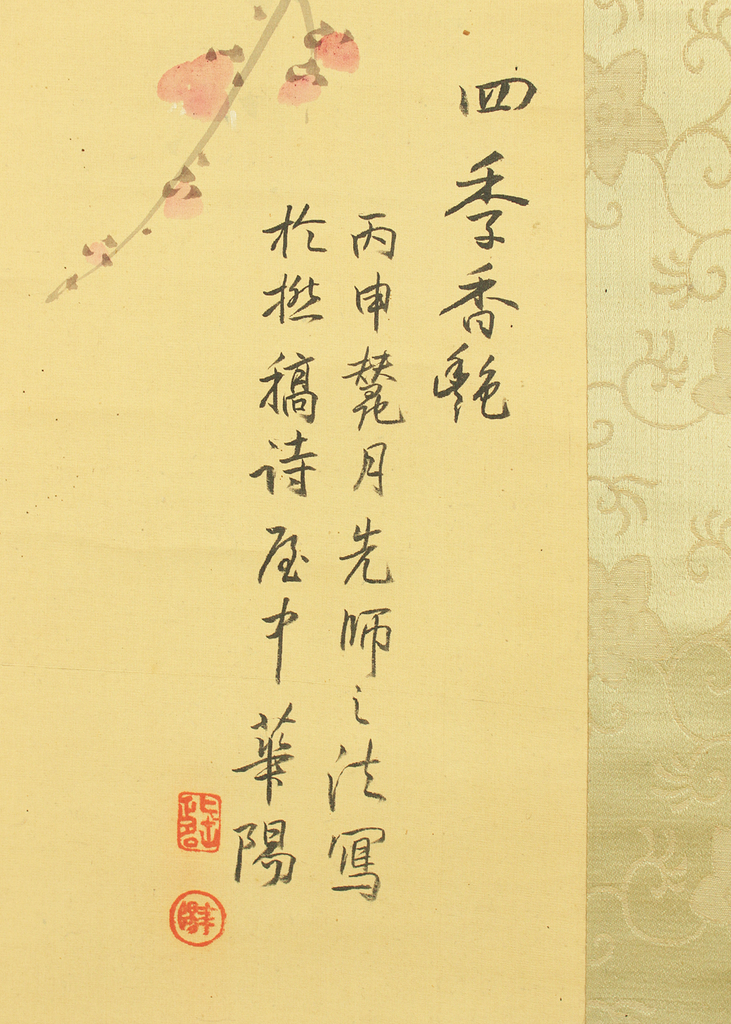 四季香艶
丙申月先師之法寫
於撚稿詩屋中華陽